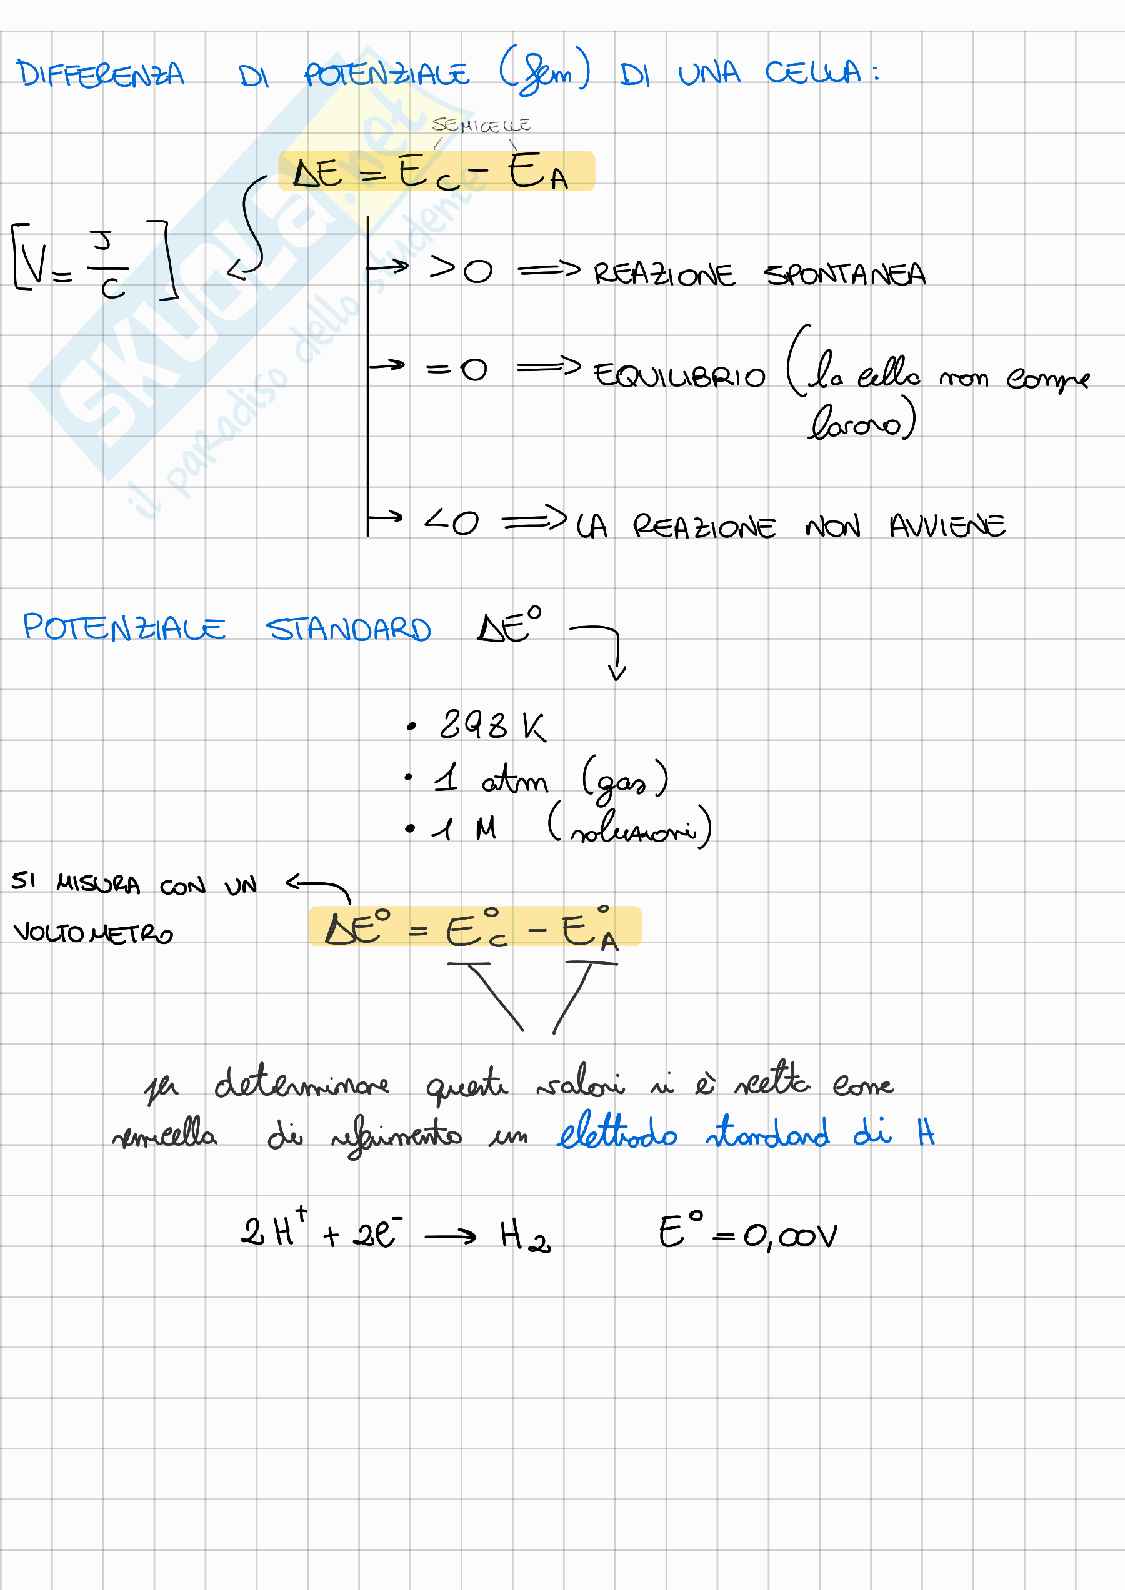 DIFFERENZA DI POTENZIALE (fem) DI UNA CELLA:
SEMICELLE
ΔE = E_C - E_A
[V = J/C]
> 0 ⟹ REAZIONE SPONTANEA
= 0 ⟹ EQUILIBRIO (la cella non compie
lavoro)
< 0 ⟹ LA REAZIONE NON AVVIENE
POTENZIALE STANDARD ΔE°
• 298 K
• 1 atm (gas)
• 1 M (soluzioni)
SI MISURA CON UN
VOLTOMETRO
ΔE° = E°_C - E°_A
per determinare questi valori si è scelta come
semicella di riferimento un elettrodo standard di H
2H⁺ + 2e⁻ → H₂ E° = 0,00V
SKUOLA.net
il paradiso dello studente